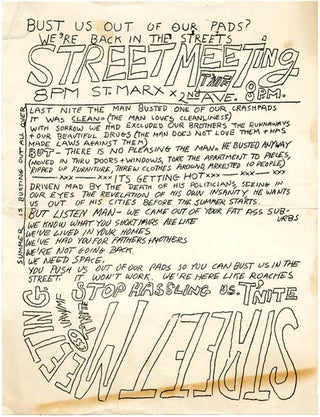 BUST US OUT OF OUR PADS?
WE'RE BACK IN THE STREETS
STREET MEETING
T'NITE
8PM ST. MARX x 2ND AVE. 8PM.
LAST NITE THE MAN BUSTED ONE OF OUR CRASHPADS
IT WAS CLEAN. (THE MAN LOVES CLEANLINESS)
WITH SORROW WE HAD EXCLUDED OUR BROTHERS THE RUNAWAYS
+ OUR BEAUTIFUL DRUGS (THE MAN DOES NOT LOVE THEM + HAS
MADE LAWS AGAINST THEM)
BUT - THERE IS NO PLEASING THE MAN. HE BUSTED ANYWAY
(MOVED IN THRU DOORS + WINDOWS, TORE THE APARTMENT TO PIECES,
RIPPED UP FURNITURE, THREW CLOTHES AROUND, ARRESTED 10 PEOPLE)
xxx — xxx — ITS GETTING HOT xxx — xxx —
DRIVEN MAD BY THE DEATH OF HIS POLITICIANS, SEEING IN
OUR EYES THE REVELATION OF HIS OWN INSANITY HE WANTS
US OUT OF HIS CITIES BEFORE THE SUMMER STARTS.
BUT LISTEN MAN - WE CAME OUT OF YOUR FAT ASS SUB-
URBS
WE KNOW WHAT YOU SHORT HAIRS ARE LIKE
WE'VE LIVED IN YOUR HOMES
WE'VE HAD YOU FOR FATHERS + MOTHERS
WE'RE NOT GOING BACK.
WE NEED SPACE.
YOU PUSH US OUT OF OUR PADS SO YOU CAN BUST US IN THE
STREET. IT WON'T WORK. WE'RE HERE LIKE ROACHES
STOP HASSLING US. T'NITE
STREET MEETING
SUMMER IS BUSTING OUT ALL OVER
UAW/MF